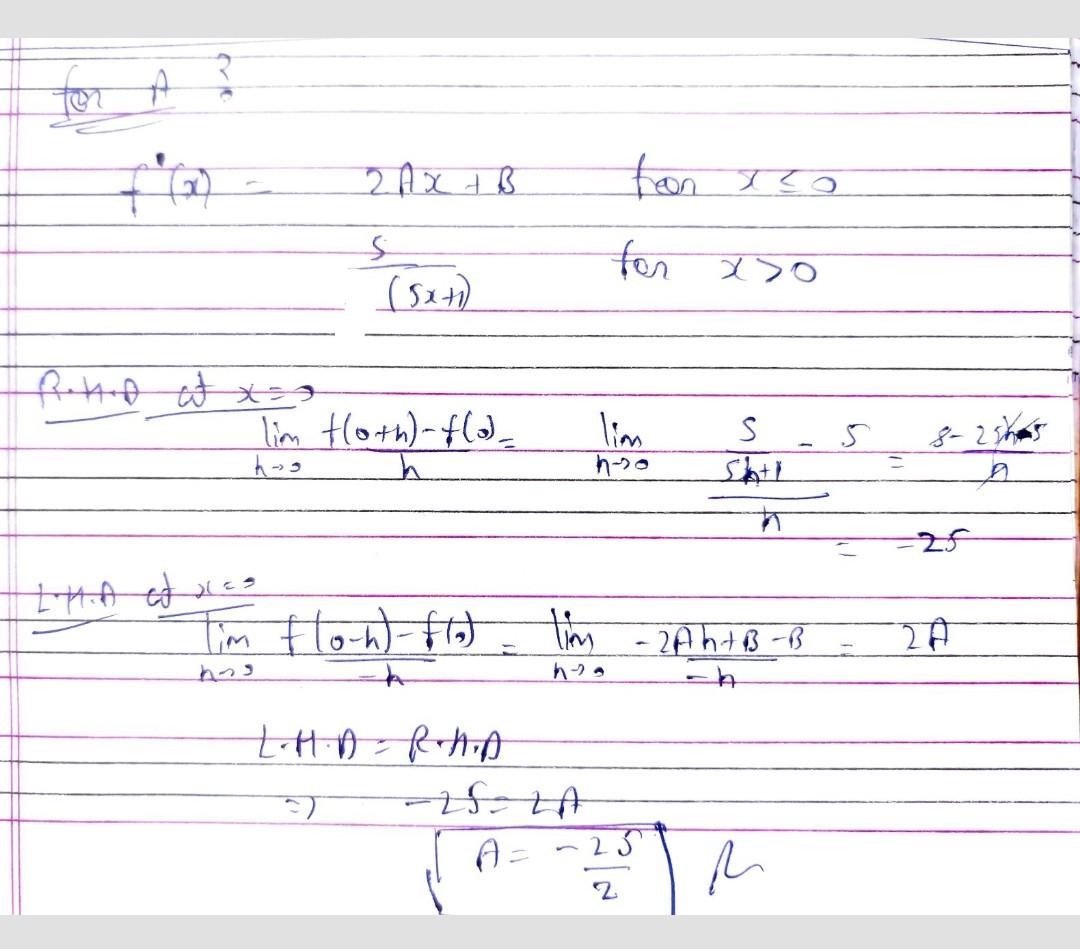 for A ?
f'(x) = 2Ax + B for x ≤ 0
5/(5x+1) for x > 0
R.H.D at x=0
lim h→0 (f(0+h)-f(0))/h = lim h→0 (5/(5h+1) - 5)/h = /h
= -25
L.H.D at x=0
lim h→0 (f(0-h)-f(0))/-h = lim h→0 (-2Ah+B-B)/-h = 2A
L.H.D = R.H.D
=> -25 = 2A
A = -25/2